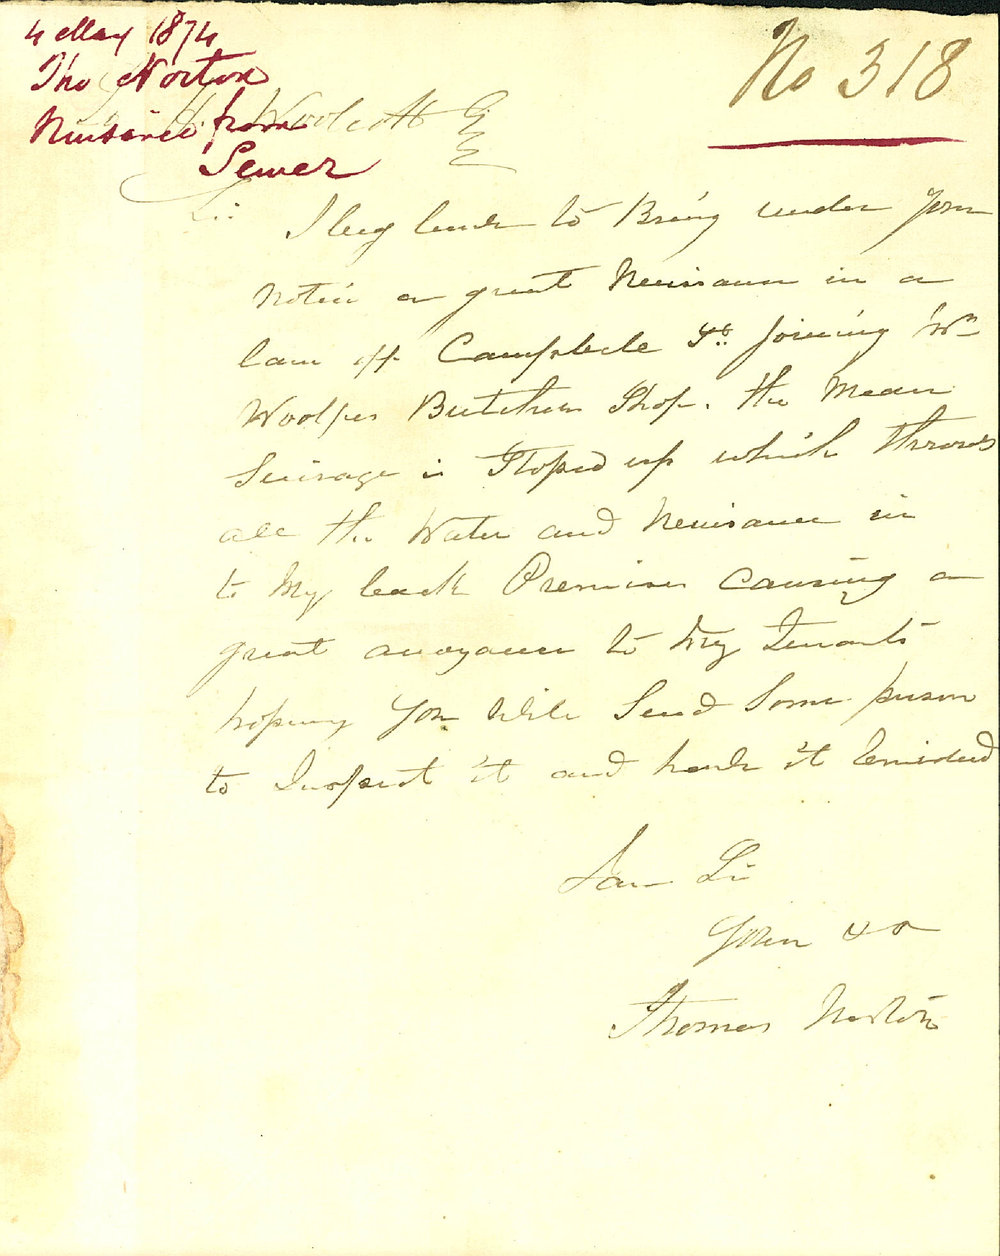 4 May 1874
Tho Norton
Nuisance from
Sewer
No 318
Woolcott Esq
Sir
I beg leave to Bring under your
notice a great Neuisance in a
lane off Campbele St joining Wm
Woolfes Butchers Shop. the Mean
Seurage is Stoped up which throws
all the Water and Neuisance in
to My back Premises causing a
great anoyance to My Tenants
hopeing you wile Send Some person
to Inspect it and have it
I am Sir
Your &c
Thomas Norton